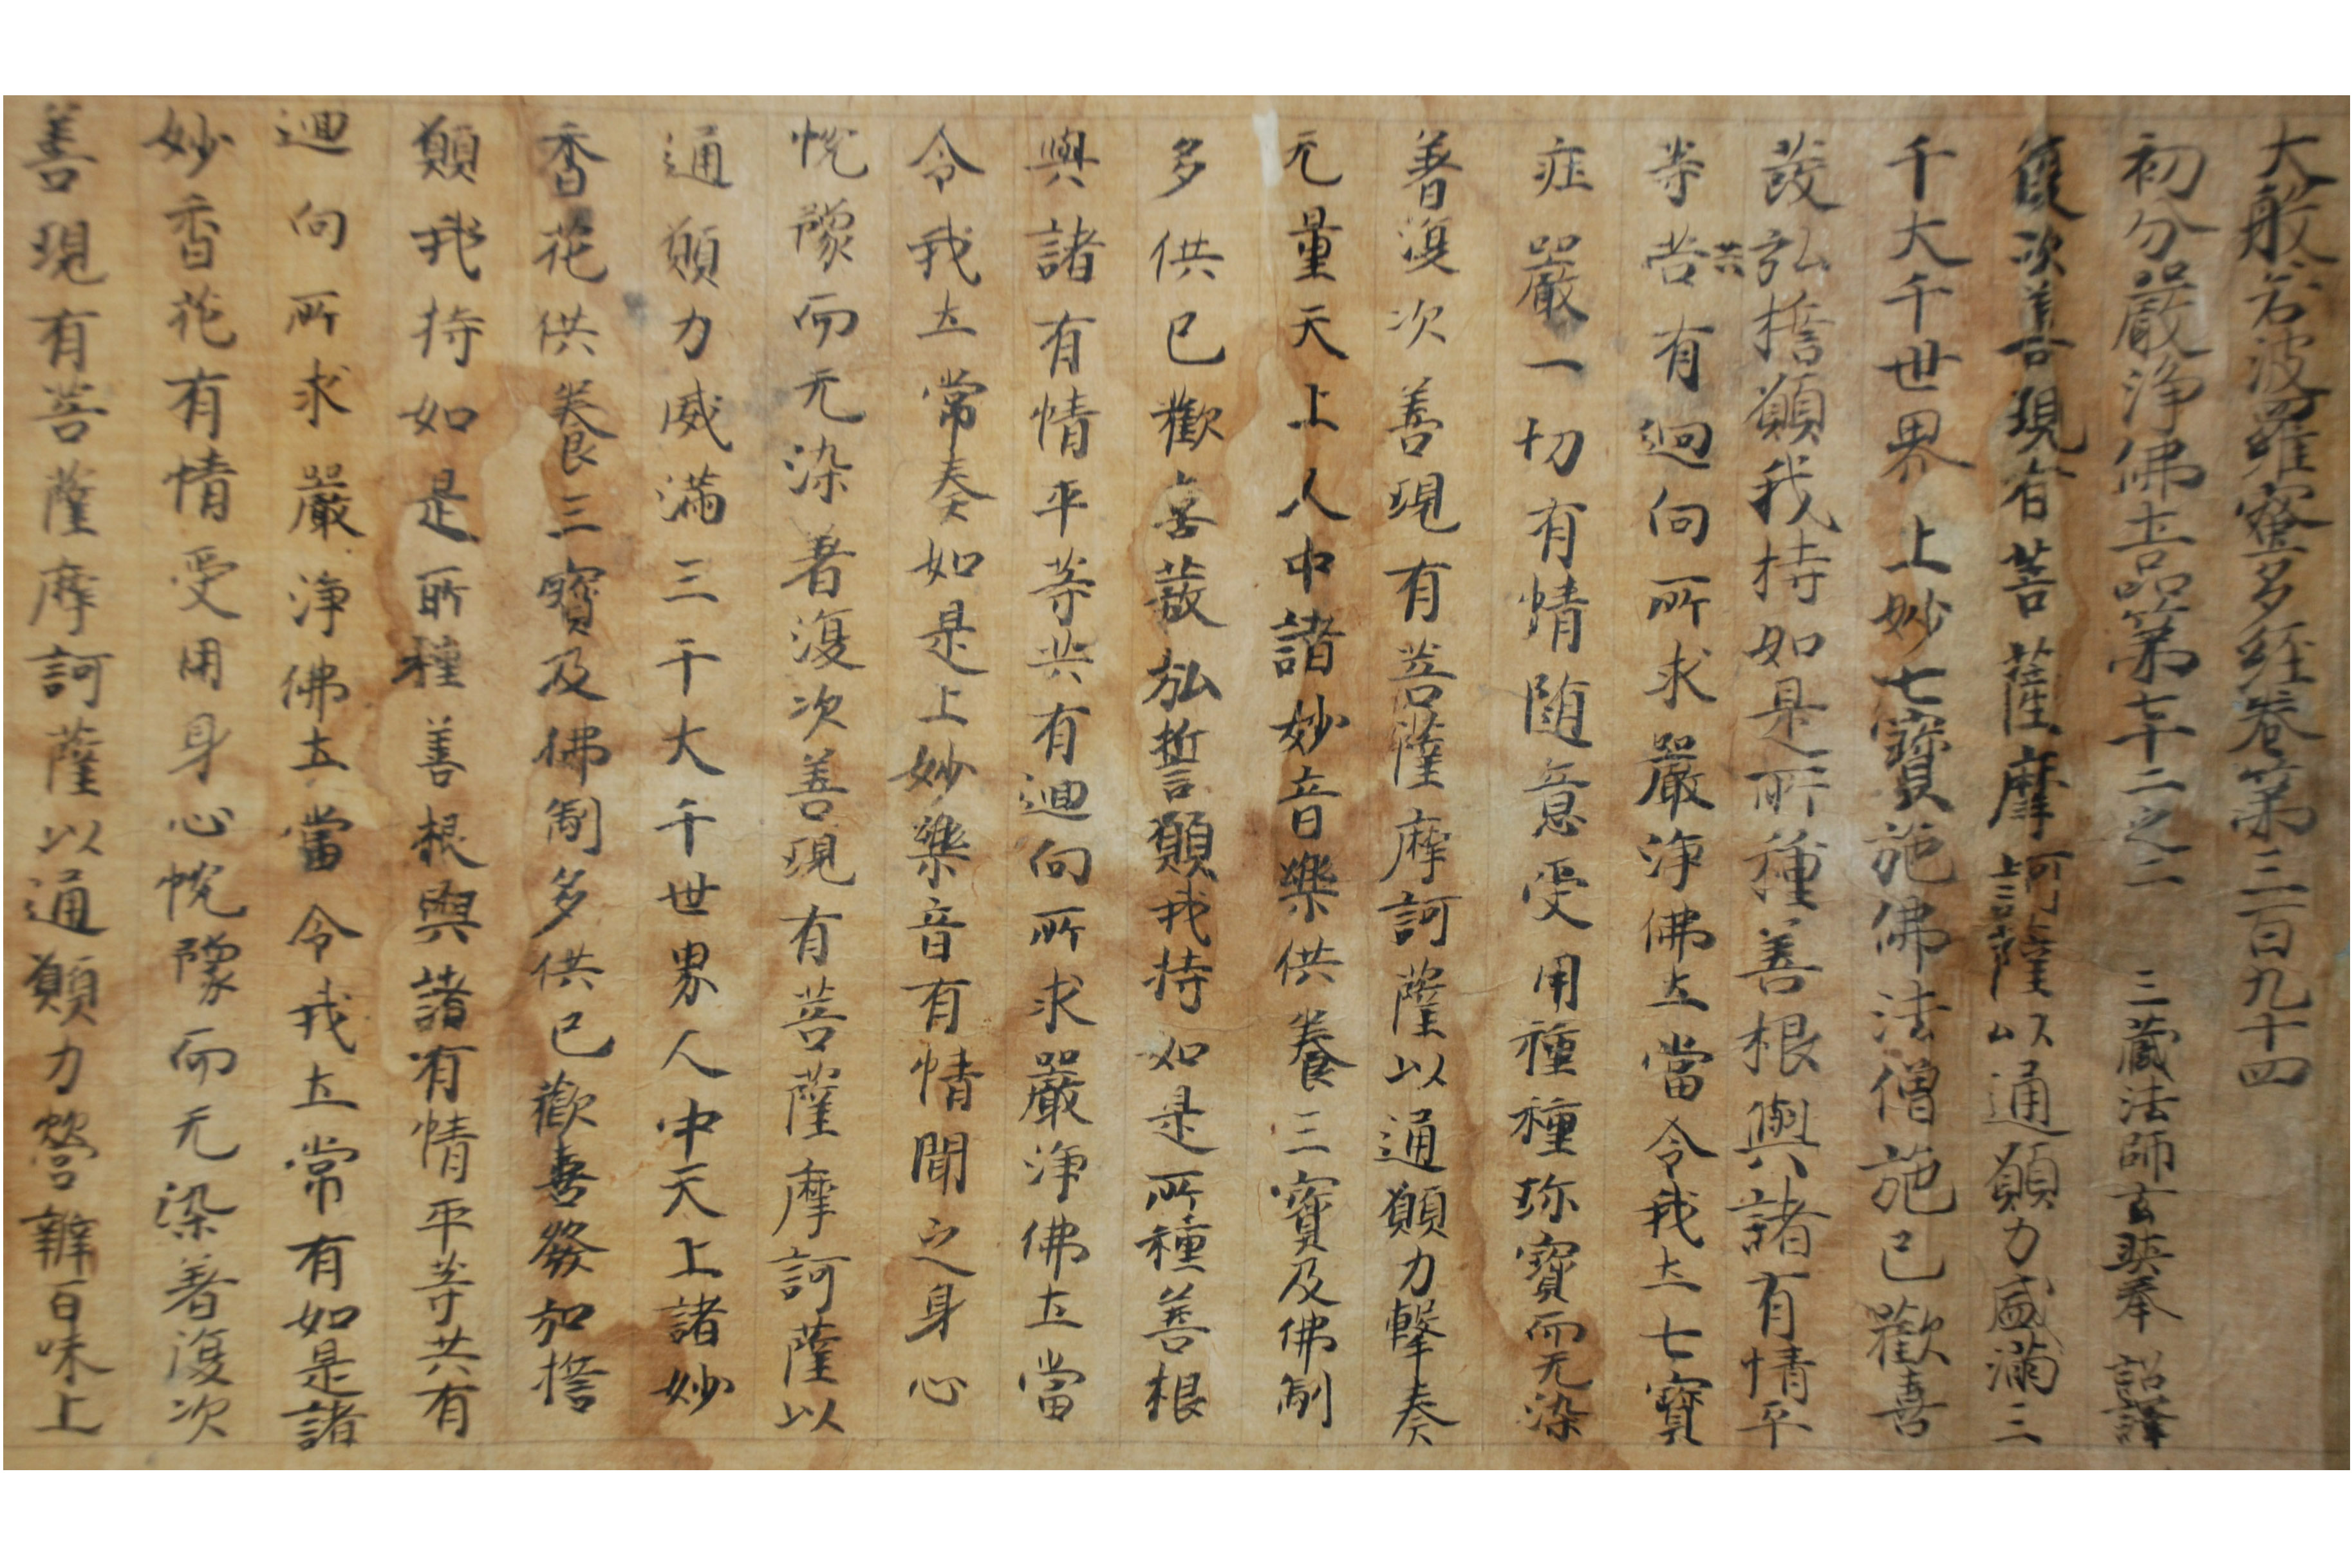 大般若波羅蜜多經卷第三百九十四
初分嚴淨佛土品第七十二之二 三藏法師玄奘奉 詔譯
復次善現有菩薩摩訶薩以通願力盛滿三
千大千世界上妙七寶施佛法僧施已歡喜
發弘擔願我持如是所種善根與諸有情平
等共有迴向所求嚴淨佛土當令我土七寶
莊嚴一切有情随意受用種種珎寶而无染
著復次善現有菩薩摩訶薩以通願力擊奏
无量天上人中諸妙音樂供養三寶及佛制
多供已歡喜發弘誓願我持如是所種善根
與諸有情平等共有迴向所求嚴淨佛土當
令我土常奏如是上妙樂音有情聞之身心
悅豫而无染著復次善現有菩薩摩訶薩以
通願力威滿三千大千世界人中天上諸妙
香花供養三寶及佛制多供已歡喜發弘擔
願我持如是所種善根與諸有情平等共有
迴向所求嚴淨佛土當令我土常有如是諸
妙香花有情受用身心悅豫而无染著復次
善現有菩薩摩訶薩以通願力營辦百味上